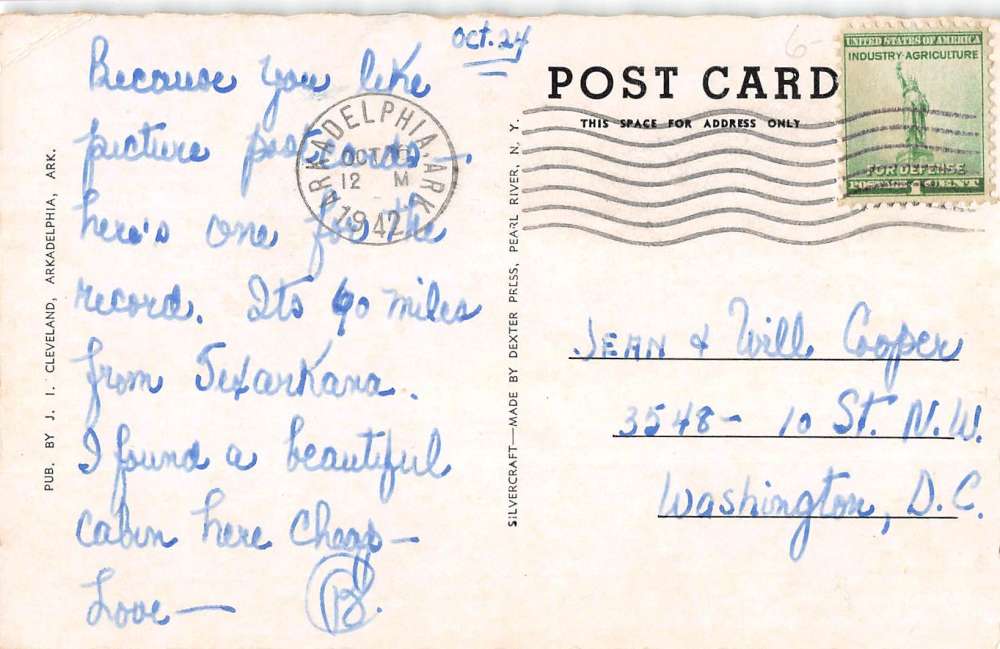 Oct. 24
Because you like
picture post cards —
here's one for the
record. Its 90 miles
from Texarkana.
I found a beautiful
cabin here cheap —
Love — B.
PUB. BY J. I. CLEVELAND, ARKADELPHIA, ARK.
ARKADELPHIA, ARK.
OCT
12 M
1942
SILVERCRAFT—MADE BY DEXTER PRESS, PEARL RIVER, N. Y.
POST CARD
THIS SPACE FOR ADDRESS ONLY
UNITED STATES OF AMERICA
INDUSTRY·AGRICULTURE
FOR DEFENSE
1
JEAN & Will Cooper
3548 — 10 St. N.W.
Washington, D.C.